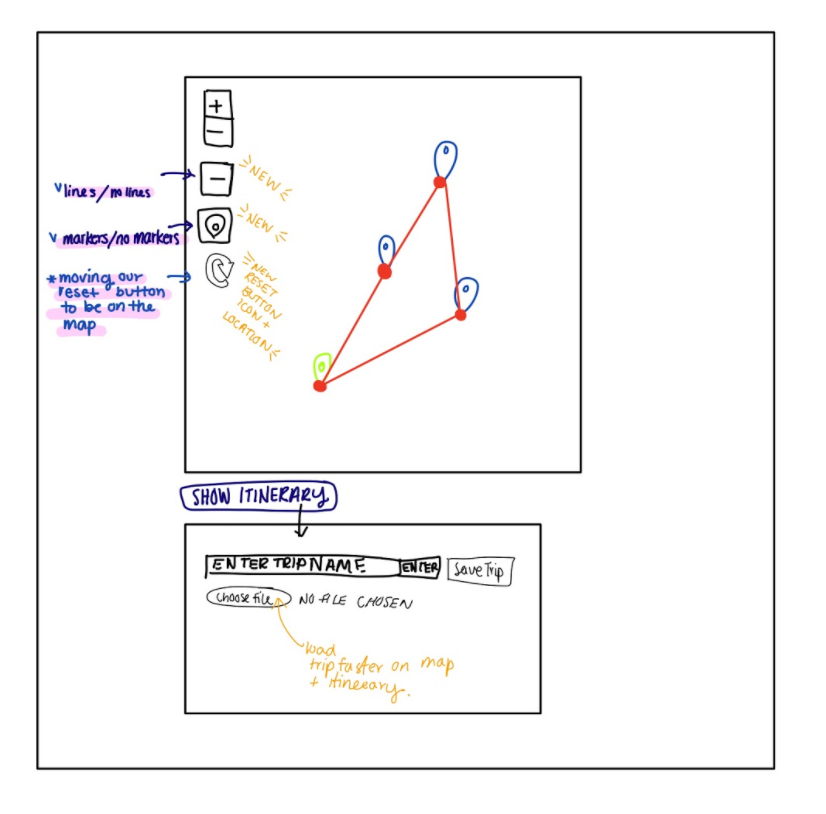 +
−
lines/no lines
−
NEW
markers/no markers
NEW
*moving our
reset button
to be on the
map
NEW
RESET
BUTTON
ICON +
LOCATION
SHOW ITINERARY
ENTER TRIP NAME
ENTER
Save Trip
Choose file
NO FILE CHOSEN
load
trip faster on map
+ itinerary.